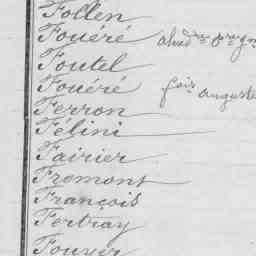 Follen
Fouéré
Foutel
Fouéré fois auguste
Ferron
Félini
Fairier
Fremont
François
Fertray
Fouyer